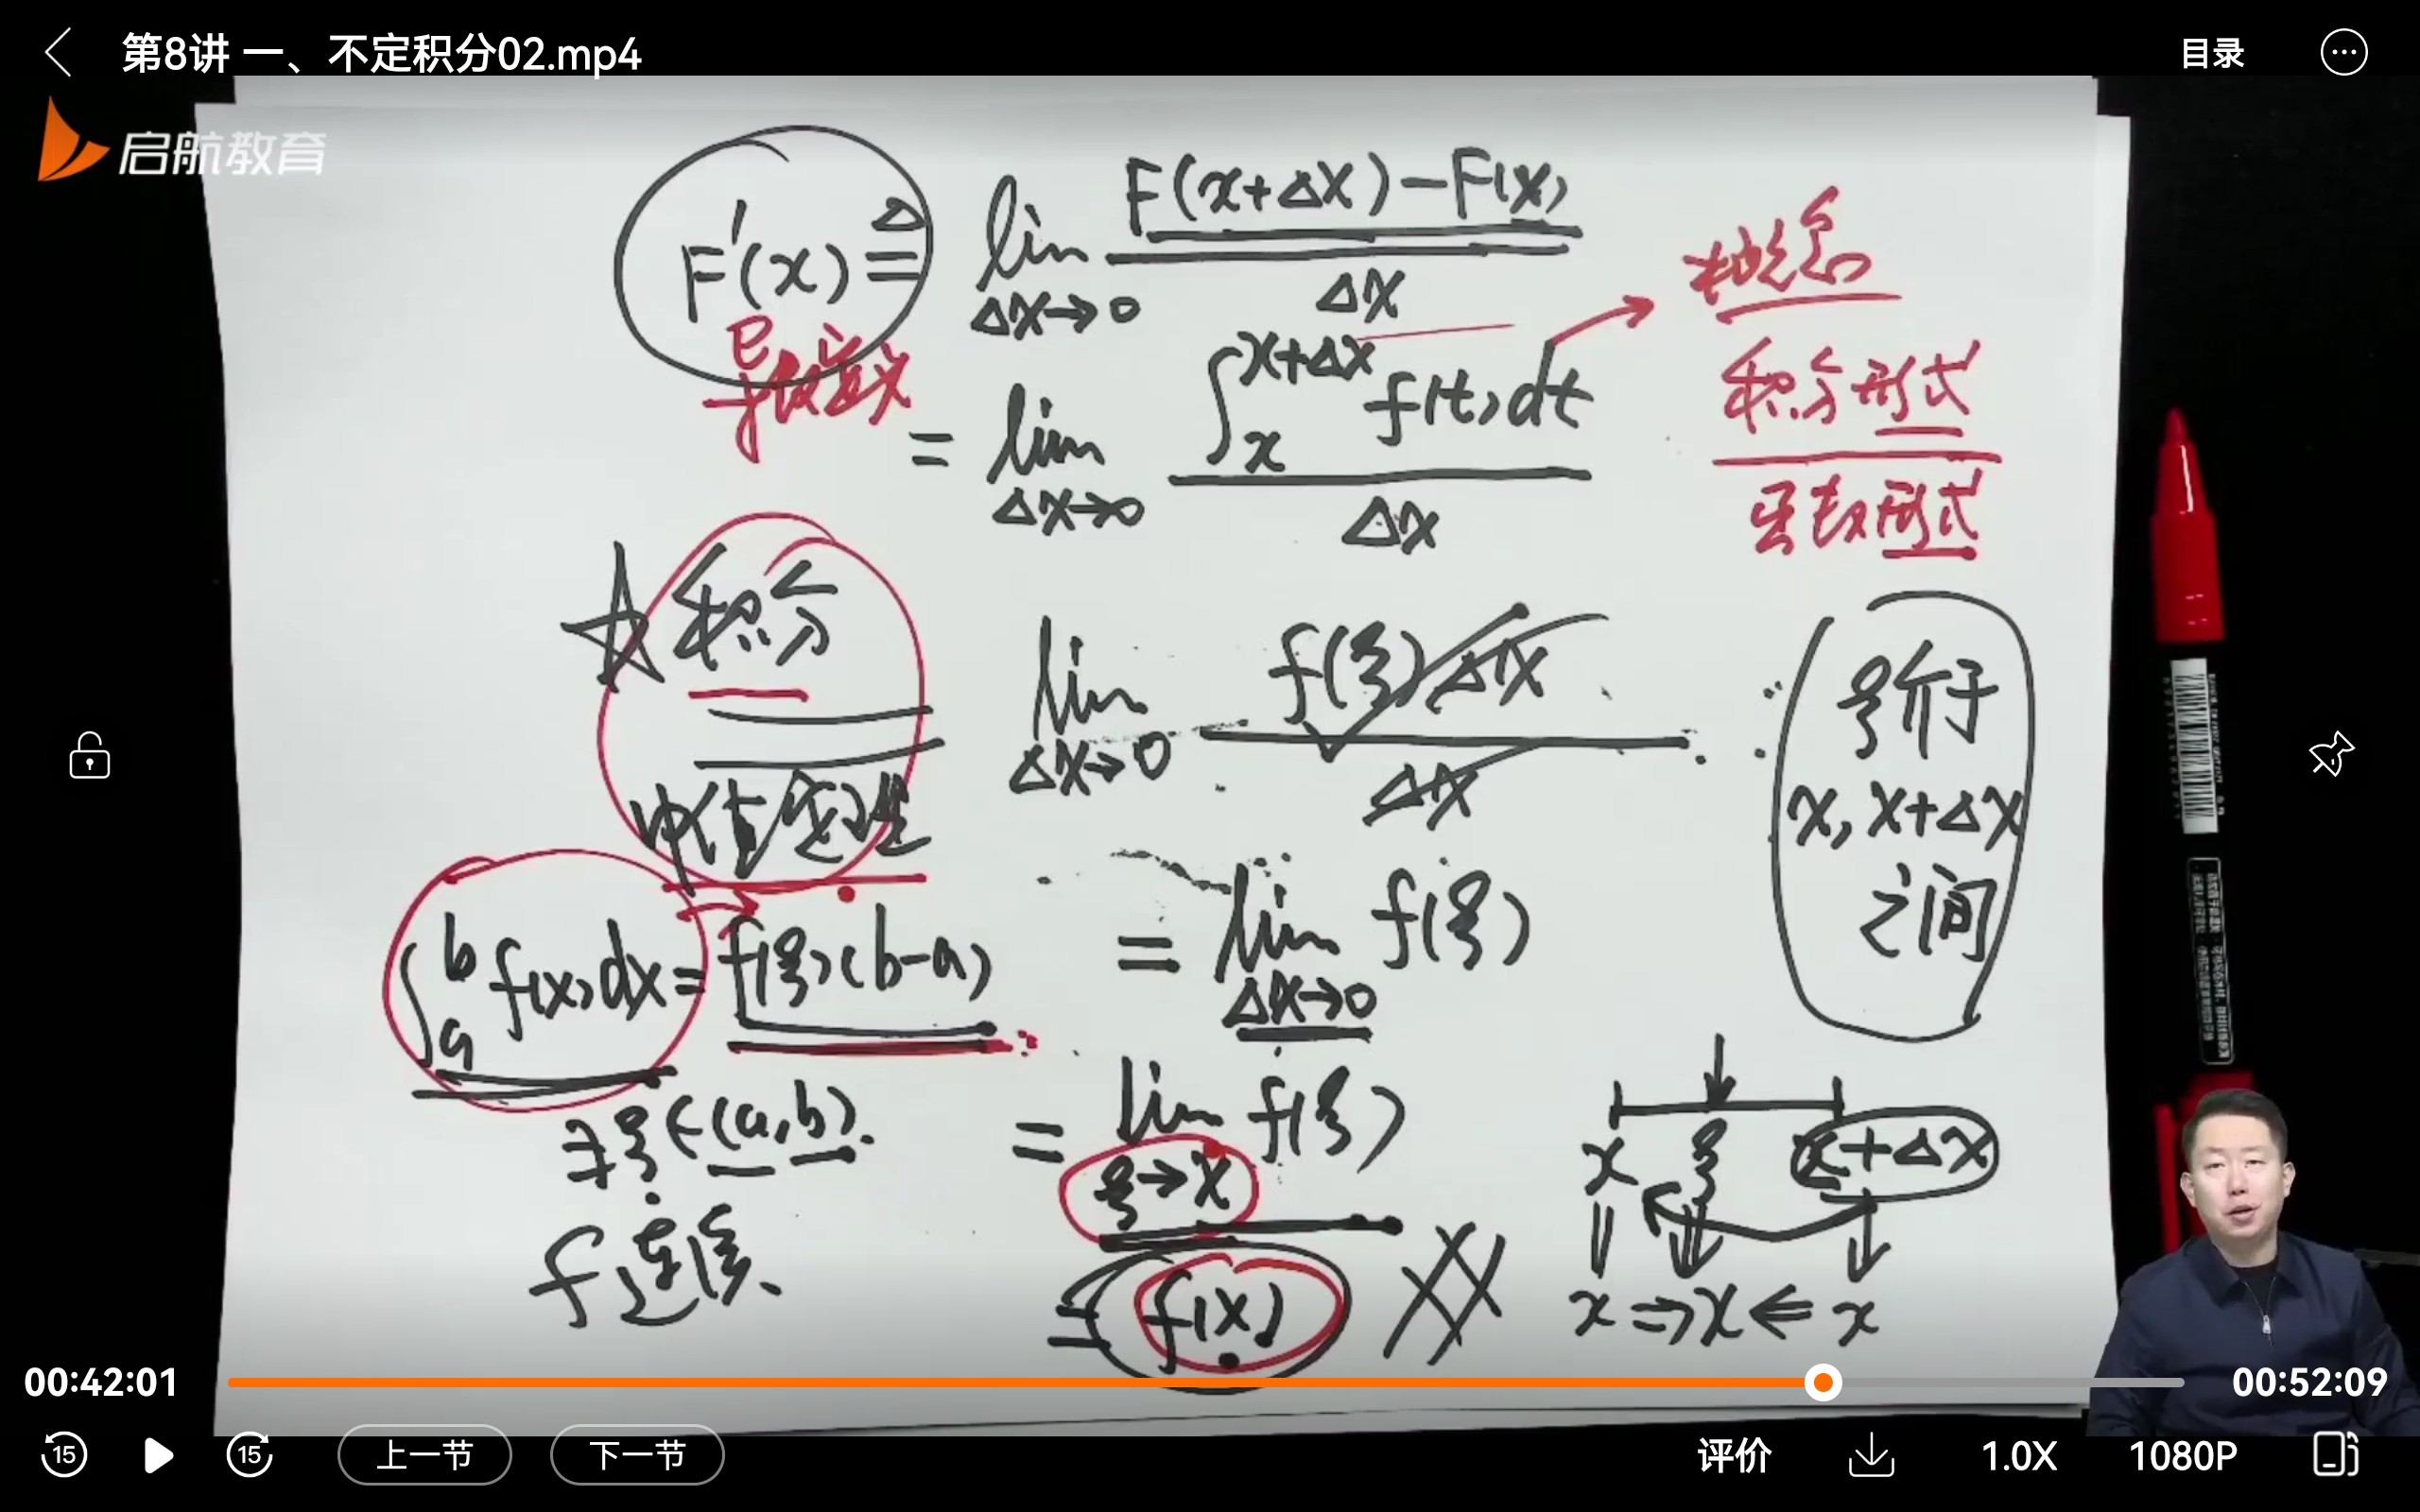 第8讲 一、不定积分02.mp4
目录
启航教育
F'(x) ≜ lim Δx→0 F(x+Δx)-F(x) / Δx
导数定义
概念
= lim Δx→0 ∫_x^{x+Δx} f(t)dt / Δx
积分形式
导数形式
☆积分
中值定理
lim Δx→0 f(ξ)Δx / Δx
ξ介于
x, x+Δx
之间
∫_a^b f(x)dx = f(ξ)(b-a)
= lim Δx→0 f(ξ)
∃ξ∈(a,b).
= lim ξ→x f(ξ)
x ξ x+Δx
f连续、
= f(x)
x ⇒ x ⇐ x
00:42:01
00:52:09
15
15
上一节
下一节
评价
1.0X
1080P